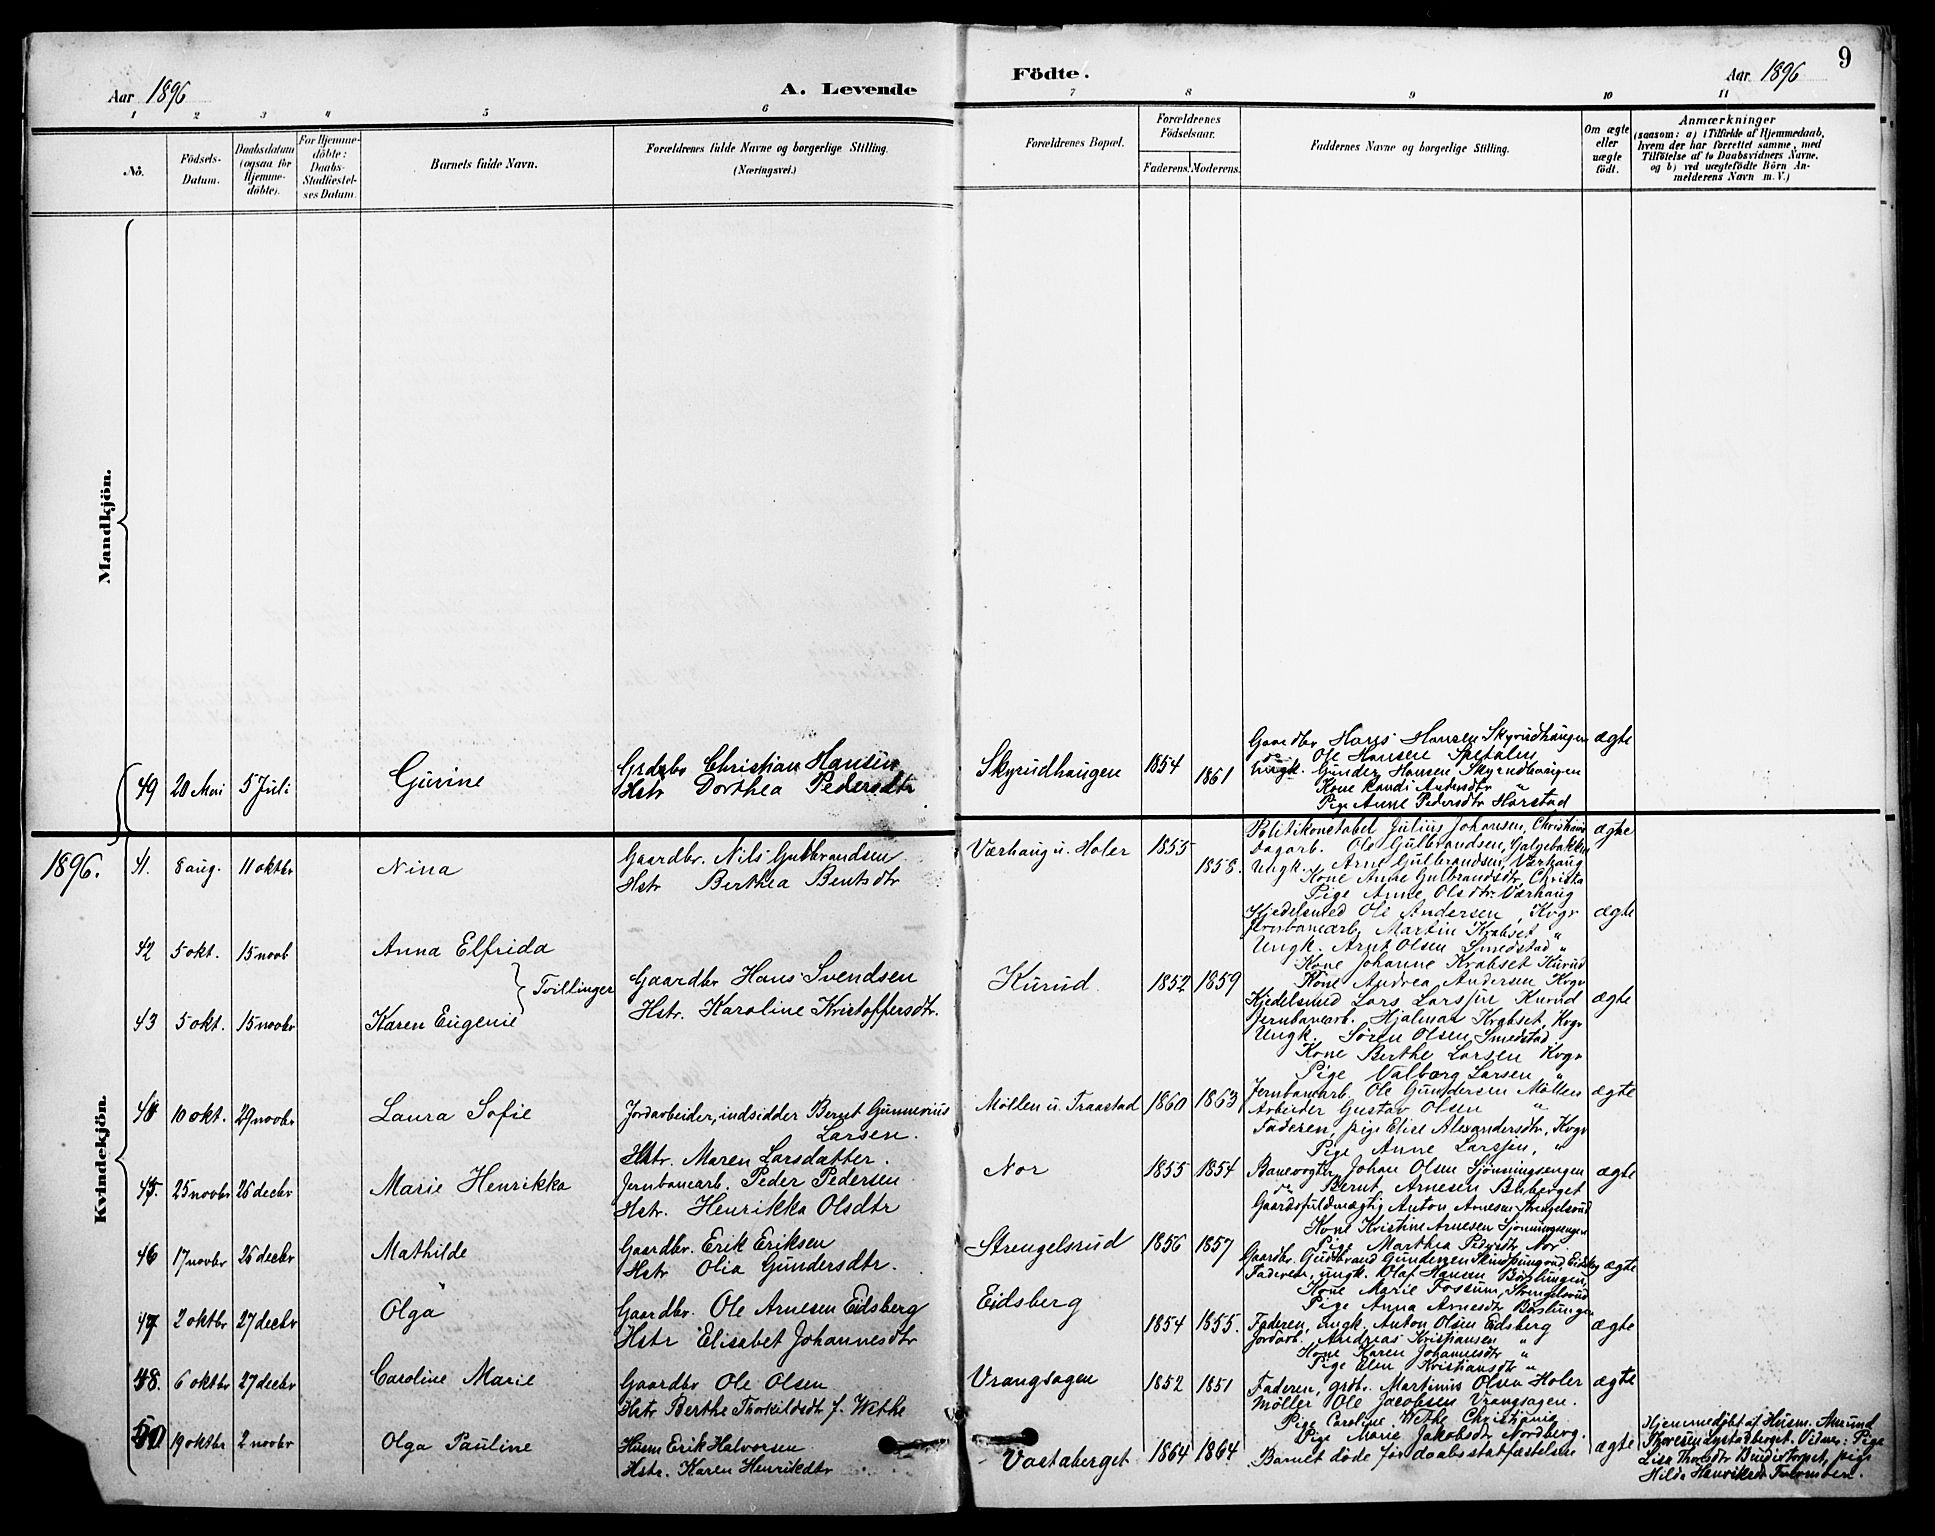 Aar 1896
A. Levende
Födte.
Aar 1896
9
1 2 3 4 5 6 7 8 9 10 11
No.
Födsels-
Datum.
Daabsdatum
(ogsaa for
Hjemme-
döbte).
For Hjemme-
döbte:
Daabs-
Stadfæstel-
ses Datum.
Barnets fulde Navn.
Forældrenes fulde Navne og borgerlige Stilling.
(Næringsvei.)
Forældrenes Bopæl.
Forældrenes
Födselsaar.
Faderens. Moderens.
Faddernes Navne og borgerlige Stilling.
Om ægte
eller
uægte
födt.
Anmærkninger
(saasom: a) i Tilfælde af Hjemmedaab,
hvem der har forrettet samme, med
Tilföielse af to Daabsvidners Navne,
og b) ved uægtefödte Börn An-
melderens Navn m. V.)
Mandkjön.
49 20 Mai 5 Juli
Gurine
Grdbr Christian Hansen
Hstr Dorthea Pedersdtr
Skyrudhaugen
1854
1861
Gaardbr Hans Hansen Skyrudhaugen
do Ole Hansen
Ungk. Gunder Hansen Skyrudhaugen
Kone Randi Andersdtr "
Pige Anne Pedersdtr Harstad
ægte
Kvindekjön.
1896.
41. 8 aug. 11 oktbr
Nina
Gaardbr. Nils Gulbrandsen
Hstr Berthea Bentsdtr
Værhaug u. Holer
1855
1858.
Politikonstabel Julius Johansen, Christiania
Dagarb. Ole Gulbrandsen, Galgebakken
Ungk. Arne Gulbrandsen, Værhaug
Kone Anne Gulbrandsdtr, Christia
Pige Anne Olsdtr. Værhaug
ægte
42 5 okt. 15 novb
Anna Elfrida
Tvillinger
Gaardbr Hans Svendsen
Hstr. Karoline Kristoffersdtr.
Kurud.
1852 1859
Kjedelsmed Ole Andersen, Kvgr
Jernbanearb. Martin Krabset "
Ungk. Arnt Olsen Smedstad "
Kone Johanne Krabset Kurud
Kone Andrea Andersen Kvgr
ægte
43 5 okt. 15 novbr
Karen Eugenie
Kjedelsmed Lars Larsen Kurud
Jernbanearb. Hjalmar Krabset, Kvgr
Ungk. Sören Olsen Smedstad
Kone Berthe Larsen Kvgr
Pige Valborg Larsen "
ægte
44 10 okt. 29 novbr
Laura Sofie
Jordarbeider, indsidder Bernt Gunnerius
Larsen.
Hstr. Maren Larsdatter.
Möllen u. Traastad
1860 1863
Jernbanearb. Ole Gundersen Möllen
Arbeider Gustav Olsen "
Faderen, pige Elise Alexandersdtr, Kvgr
Pige Anne Larsen, "
ægte
45. 25 novbr 26 decbr
Marie Henrikka
Jernbanearb. Peder Pedersen
Hstr. Henrikka Olsdtr
Nor
1855 1854
Banevogter Johan Olsen Sjönningsengen
do Bernt Arnesen Buberget
Gaardsfuldmægtig Anton Arnesen Strengelsrud
Kone Kristine Arnesen Sjönningsengen
Pige Marthea Pedersdtr Nor
ægte
46 17 novbr 26 decbr
Mathilde
Gaardbr. Erik Eriksen
Hstr Olia Gundersdtr.
Strengelsrud
1856 1857
Gaardbr. Gudbrand Gundersen
Faderen, ungk. Olaf Hansen Böslungen,
Kone Marie Fossum, Strengelsrud
Pige Anna Arnesdtr Böslungen
ægte
47 2 oktbr 27 decbr
Olga
Gaardbr. Ole Arnesen Eidsberg
Hstr Elisabet Johannesdtr
Eidsberg
1854 1855.
Faderen, Ungk. Anton Olsen Eidsberg
Jordarb. Andreas Kristiansen "
Kone Karen Johannesdtr "
Pige Elen Kristiansdtr "
ægte
48. 6 oktbr 27 decbr
Caroline Marie
Gaardbr Ole Olsen
Hstr Berthe Thorkildsdtr f. Withe
Vrangsagen
1852 1851
Faderen, grdbr. Martinus Olsen Holer
Möller Ole Jacobsen Vrangsagen.
Pige Caroline Withe Christiania
Pige Marie Jakobsdtr Nordberg.
ægte
50 19 oktbr 2 novbr
Olga Pauline
Husm Erik Halvorsen
Hstr. Karen Henriksdtr
Vastaberget
1864 1864
Barnet döde för daabsstadfæstelsen
ægte
Hjemmedöbt af Husm. Amund
Thoresen. Vidner: Pige
Lisa Thorsdtr, pige
Hilda Henriksdtr